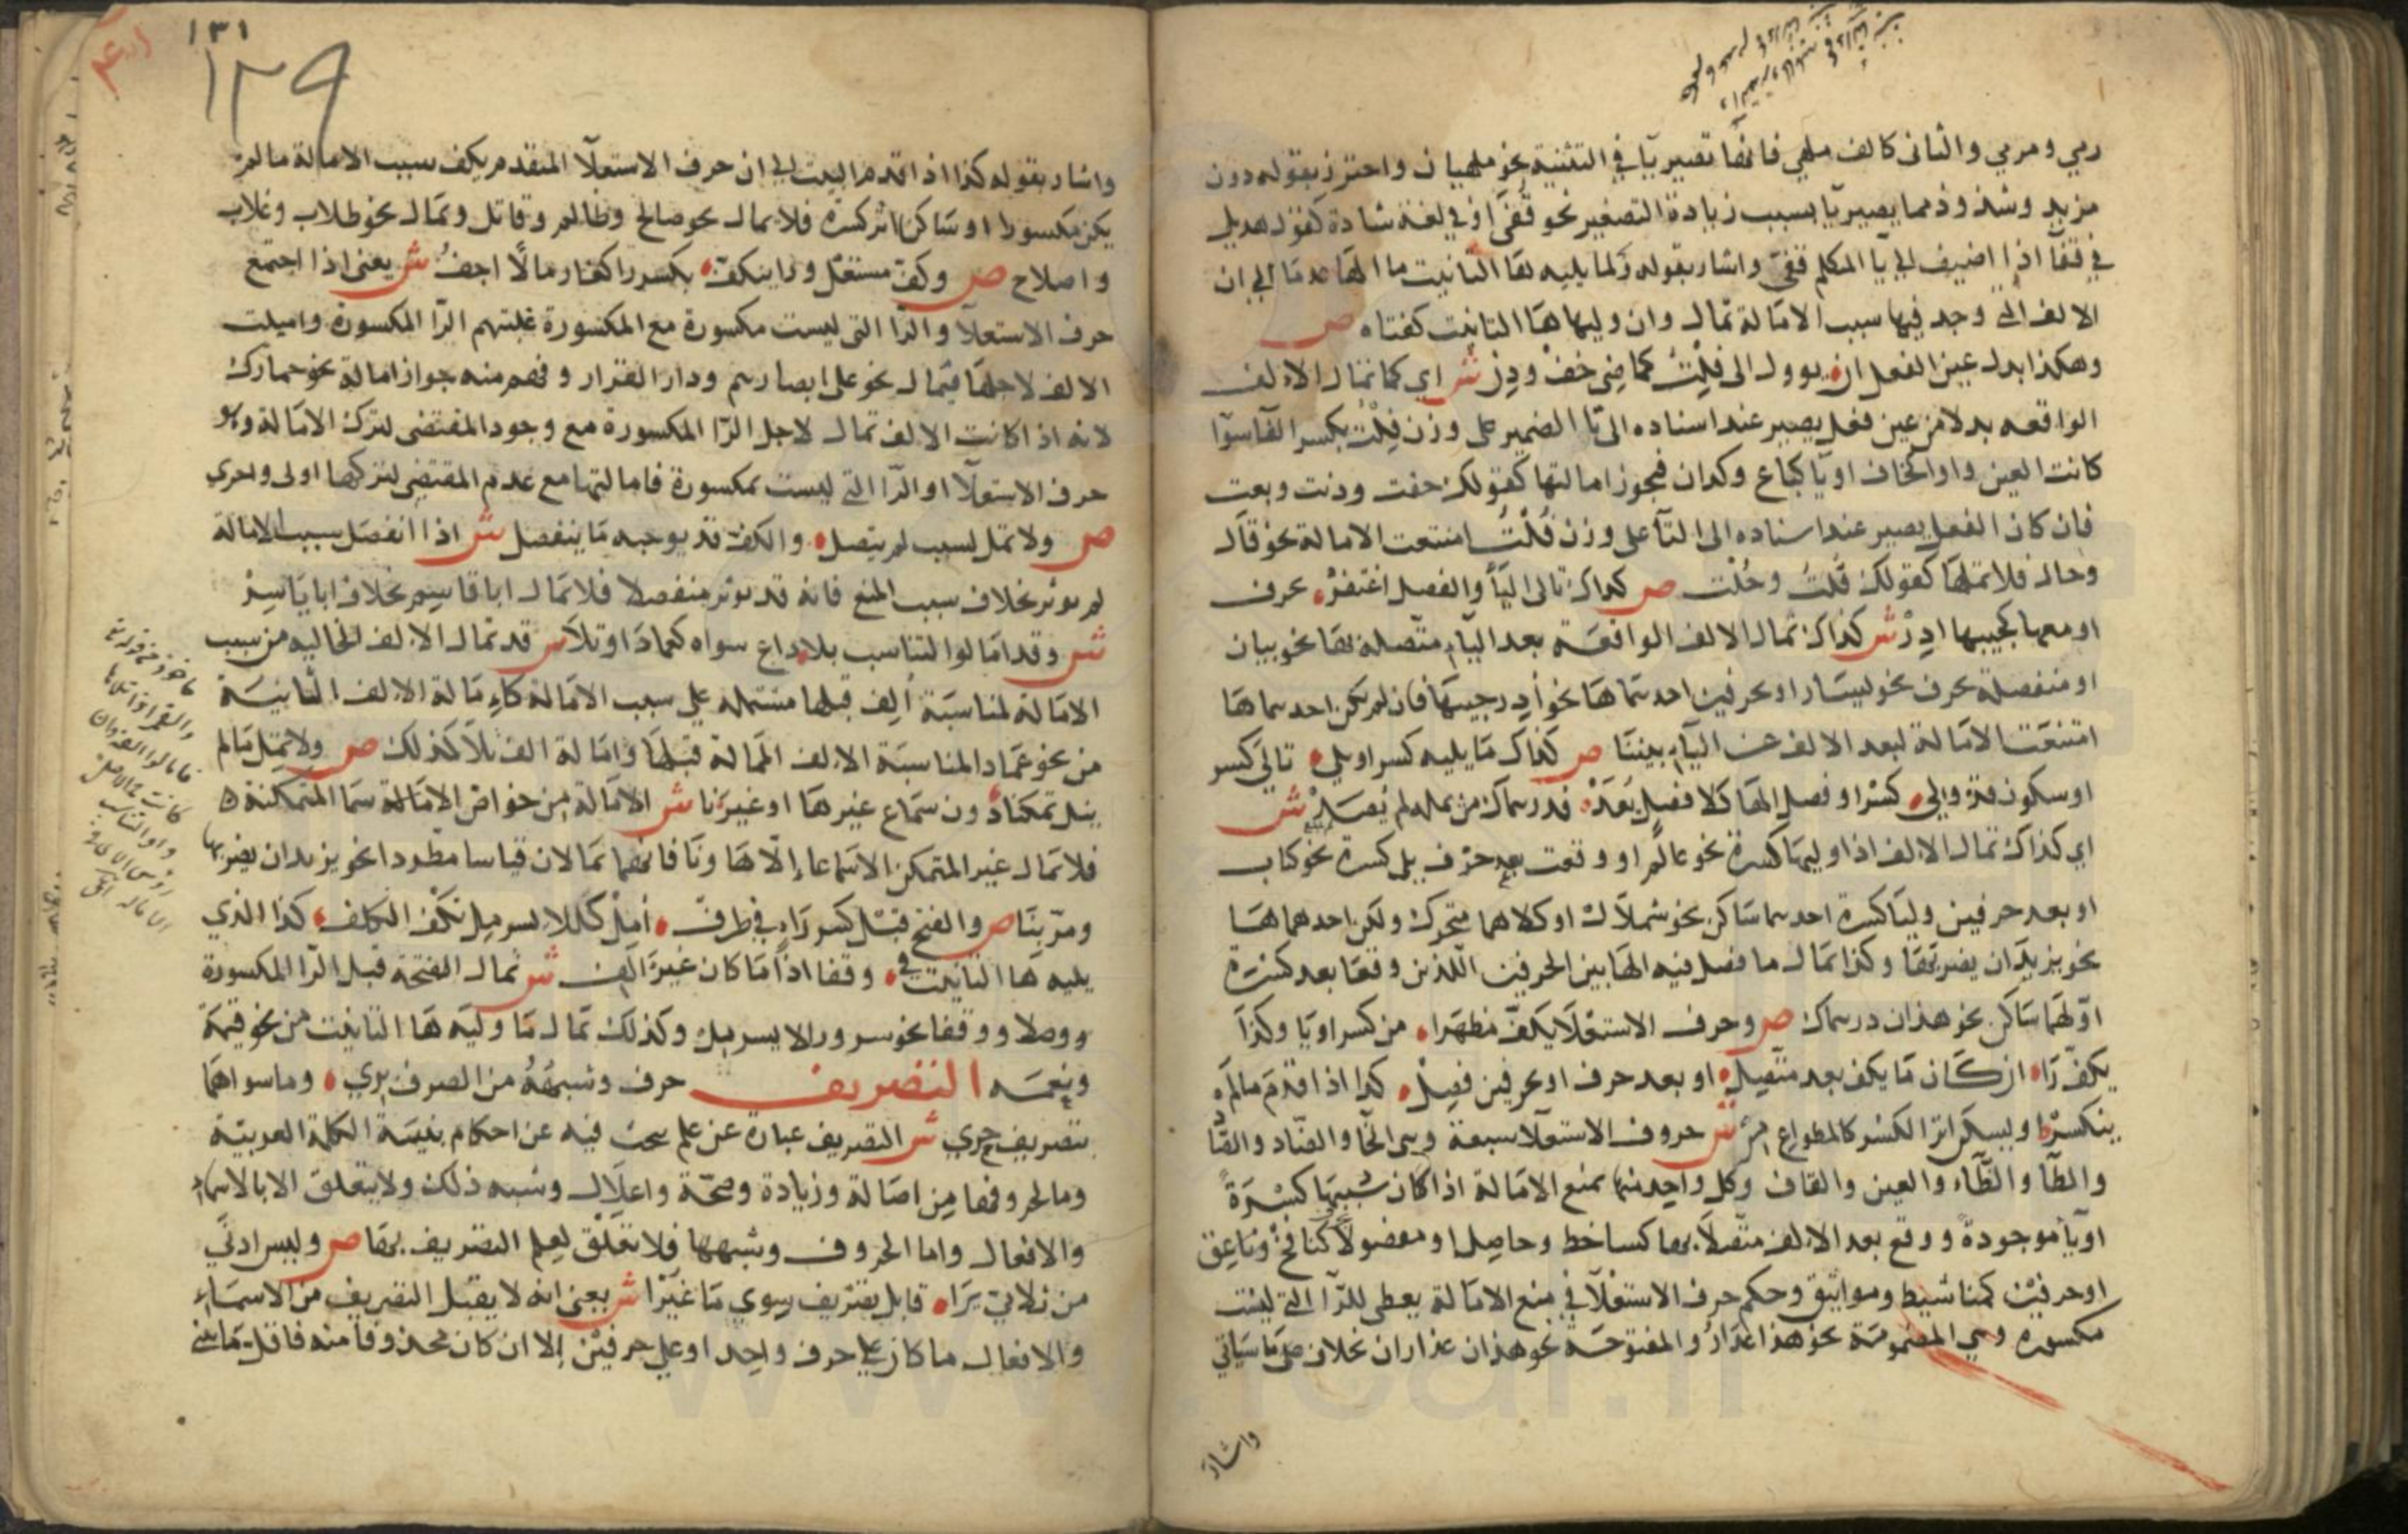 رمي ومرمي والثاني كالف ملهي فانها تصير يآ في التثنية نحو ملهيان واحترز بقوله دون
مزيد وشذوذ مما يصير يآ بسبب زيادة التصغير نحو قفيّ او في لغة شاذة كقول هذيل
في قفآ اذا اضيف الى يآ المتكلم قفيّ واشار بقوله ولما يليه ها التانيث ما الها عدما الى ان
الالف التي وجد فيها سبب الامالة تمال وان وليها ها التانيث كفتاه ص
وهكذا بدل عين الفعل ان يوول الى فلت كماضي خف ودن ش اي كما تمال الالف
الواقعه بدلا من عين فعل يصير عند اسناده الى تا الضمير على وزن فلت بكسر الفآ سوآ
كانت العين واوا كخاف او يآ كباع وكدان فيجوز امالتها كقولك خفت ودنت وبعت
فان كان الفعل يصير عند اسناده الى التآ على وزن فُلْتُ امتنعت الامالة نحو قال
وحال فلا تملها كقولك قُلتُ وحُلت ص كذاك تالي اليآ والفصل اغتفر بحرف
او مع ها كجيبها ادر ش كذاك تمال الالف الواقعة بعد اليآء متصلة بها نحو بيان
او منفصلة بحرف نحو ليسار او بحرفين احدهما ها نحو أدر جيبها فان لم يكن احدهما ها
امتنعت الامالة لبعد الالف عن اليآء بيننا ص كذاك ما يليه كسر او يلي تالي كسر
او سكون قد ولي كسرا وفصل الها كلا فصل يُعَدْ فدرهماك من يمله لم يُصَدْ ش
اي كذاك تمال الالف اذا وليها كسرة نحو عالم او وقعت بعد حرف يلي كسرة نحو كتاب
او بعد حرفين وليا كسرة احدهما ساكن نحو شملال او كلاهما متحرك ولكن احدهما ها
نحو يريدان يضربها وكذا تمال ما فصل فيه الها بين الحرفين اللذين وقعا بعد كسرة
اولهما ساكن نحو هذان درهماك ص وحرف الاستعلا يكف مظهرا من كسر او يا وكذا
يكف رَا ان كان ما يكف بعد متصل او بعد حرف او بحرفين فصل كذا اذا قدم ما لم
ينكسر او يسكن اثر الكسر كالمطواع مر ش حروف الاستعلآ سبعة وهي الخآ والصاد والضا
والطآ والظآء والغين والقاف وكل واحد منها يمنع الامالة اذا كان سببها كسرة
او يآ موجودة ووقع بعد الالف متصلا بها كساخط وحاصل او مفصولا كنافخ وناعق
او حرفين كمناشيط ومواثيق وحكم حرف الاستعلآ في منع الامالة يعطى للرآ التي ليست
مكسوره وهي المضمومة نحو هذا عذار والمفتوحة نحو هذان عذاران بخلاف على ما سياتي
واشار
١٣١
١٢٩
واشار بقوله كذا اذا قدم البيت الى ان حرف الاستعلآ المتقدم يكف سبب الامالة ما لم
يكن مكسورا او ساكنا اثر كسرة فلا تمال نحو صالح وظالم وقاتل وتمال نحو طلاب وغلاب
واصلاح ص وكف مستعل ورا ينكف بكسر را كغارما لا اجفُ ش يعني اذا اجتمع
حرف الاستعلآ والرآ التي ليست مكسورة مع المكسورة غلبتهم الرآ المكسورة واميلت
الالف لاجلها فيمال نحو على ابصارهم ودار القرار وفهم منه جواز امالة نحو حمارك
لانه اذا كانت الالف تمال لاجل الرّا المكسورة مع وجود المقتضى لترك الامالة وهو
حرف الاستعلآ او الرآ التي ليست بمكسورة فامالتها مع عدم المقتضي لتركها اولى واحرى
ص ولا تمل لسبب لم يتصل والكف قد يوجبه ما ينفصل ش اذا انفصل سبب الامالة
لم يوثر بخلاف سبب المنع فانه قد يوثر منفصلا فلا تمال ابا قاسم بخلاف ابا ياسر
ش وقد امالوا لتناسب بلا داع سواه كعمادا وتلا ش قد تمال الالف الخاليه من سبب
الامالة لمناسبة ألف قبلها مشتملة على سبب الامالة كامالة الالف الثانية
من نحو عمادا لمناسبة الالف الممالة قبلها وامالة الف تلا كذلك ص ولا تمل ما لم
ينل تمكنا دون سماع غيرها وغيرنا ش الامالة من خواص الاسما المتمكنة
فلا تمال غير المتمكن الا سماعا إلّا ها ونا فانهما تمالان قياسا مطردا نحو يريدان يضربها
ومر بنا ص والفتح قبل كسر راء في طرف أمِلْ كللايسر مِل تكف الكلف كذا الذي
يليه ها التانيث في وقف اذا ما كان غير الف ش تمال الفتحة قبل الرّا المكسورة
ووصلا ووقفا نحو بسرر وللايسر مل وكذلك تمال ما وليه ها التانيث من نحو قيمة
ونعمه التصريف حرف وشبهُهُ من الصرف بري وما سواهما
بتصريف حري ش التصريف عبارة عن علم يبحث فيه عن احكام بنية الكلمة العربية
وما لحروفها من اصالة وزيادة وصحّة واعلال وشبه ذلك ولا يتعلق الا بالاسماء
والافعال واما الحروف وشبهها فلا تعلق لعلم التصريف بها ص وليس ادنى
من ثلاثي يرا قابل تصريف سوى ما غيرا ش يعني انه لا يقبل التصريف من الاسماء
والافعال ما كان على حرف واحد او على حرفين إلا ان كان محذوفا منه فاقل ما تبنى